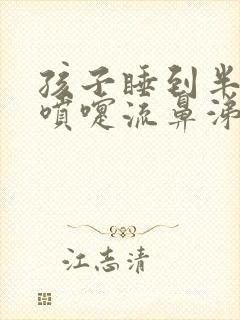 孩子睡到半
喷嚏流鼻涕
江志清